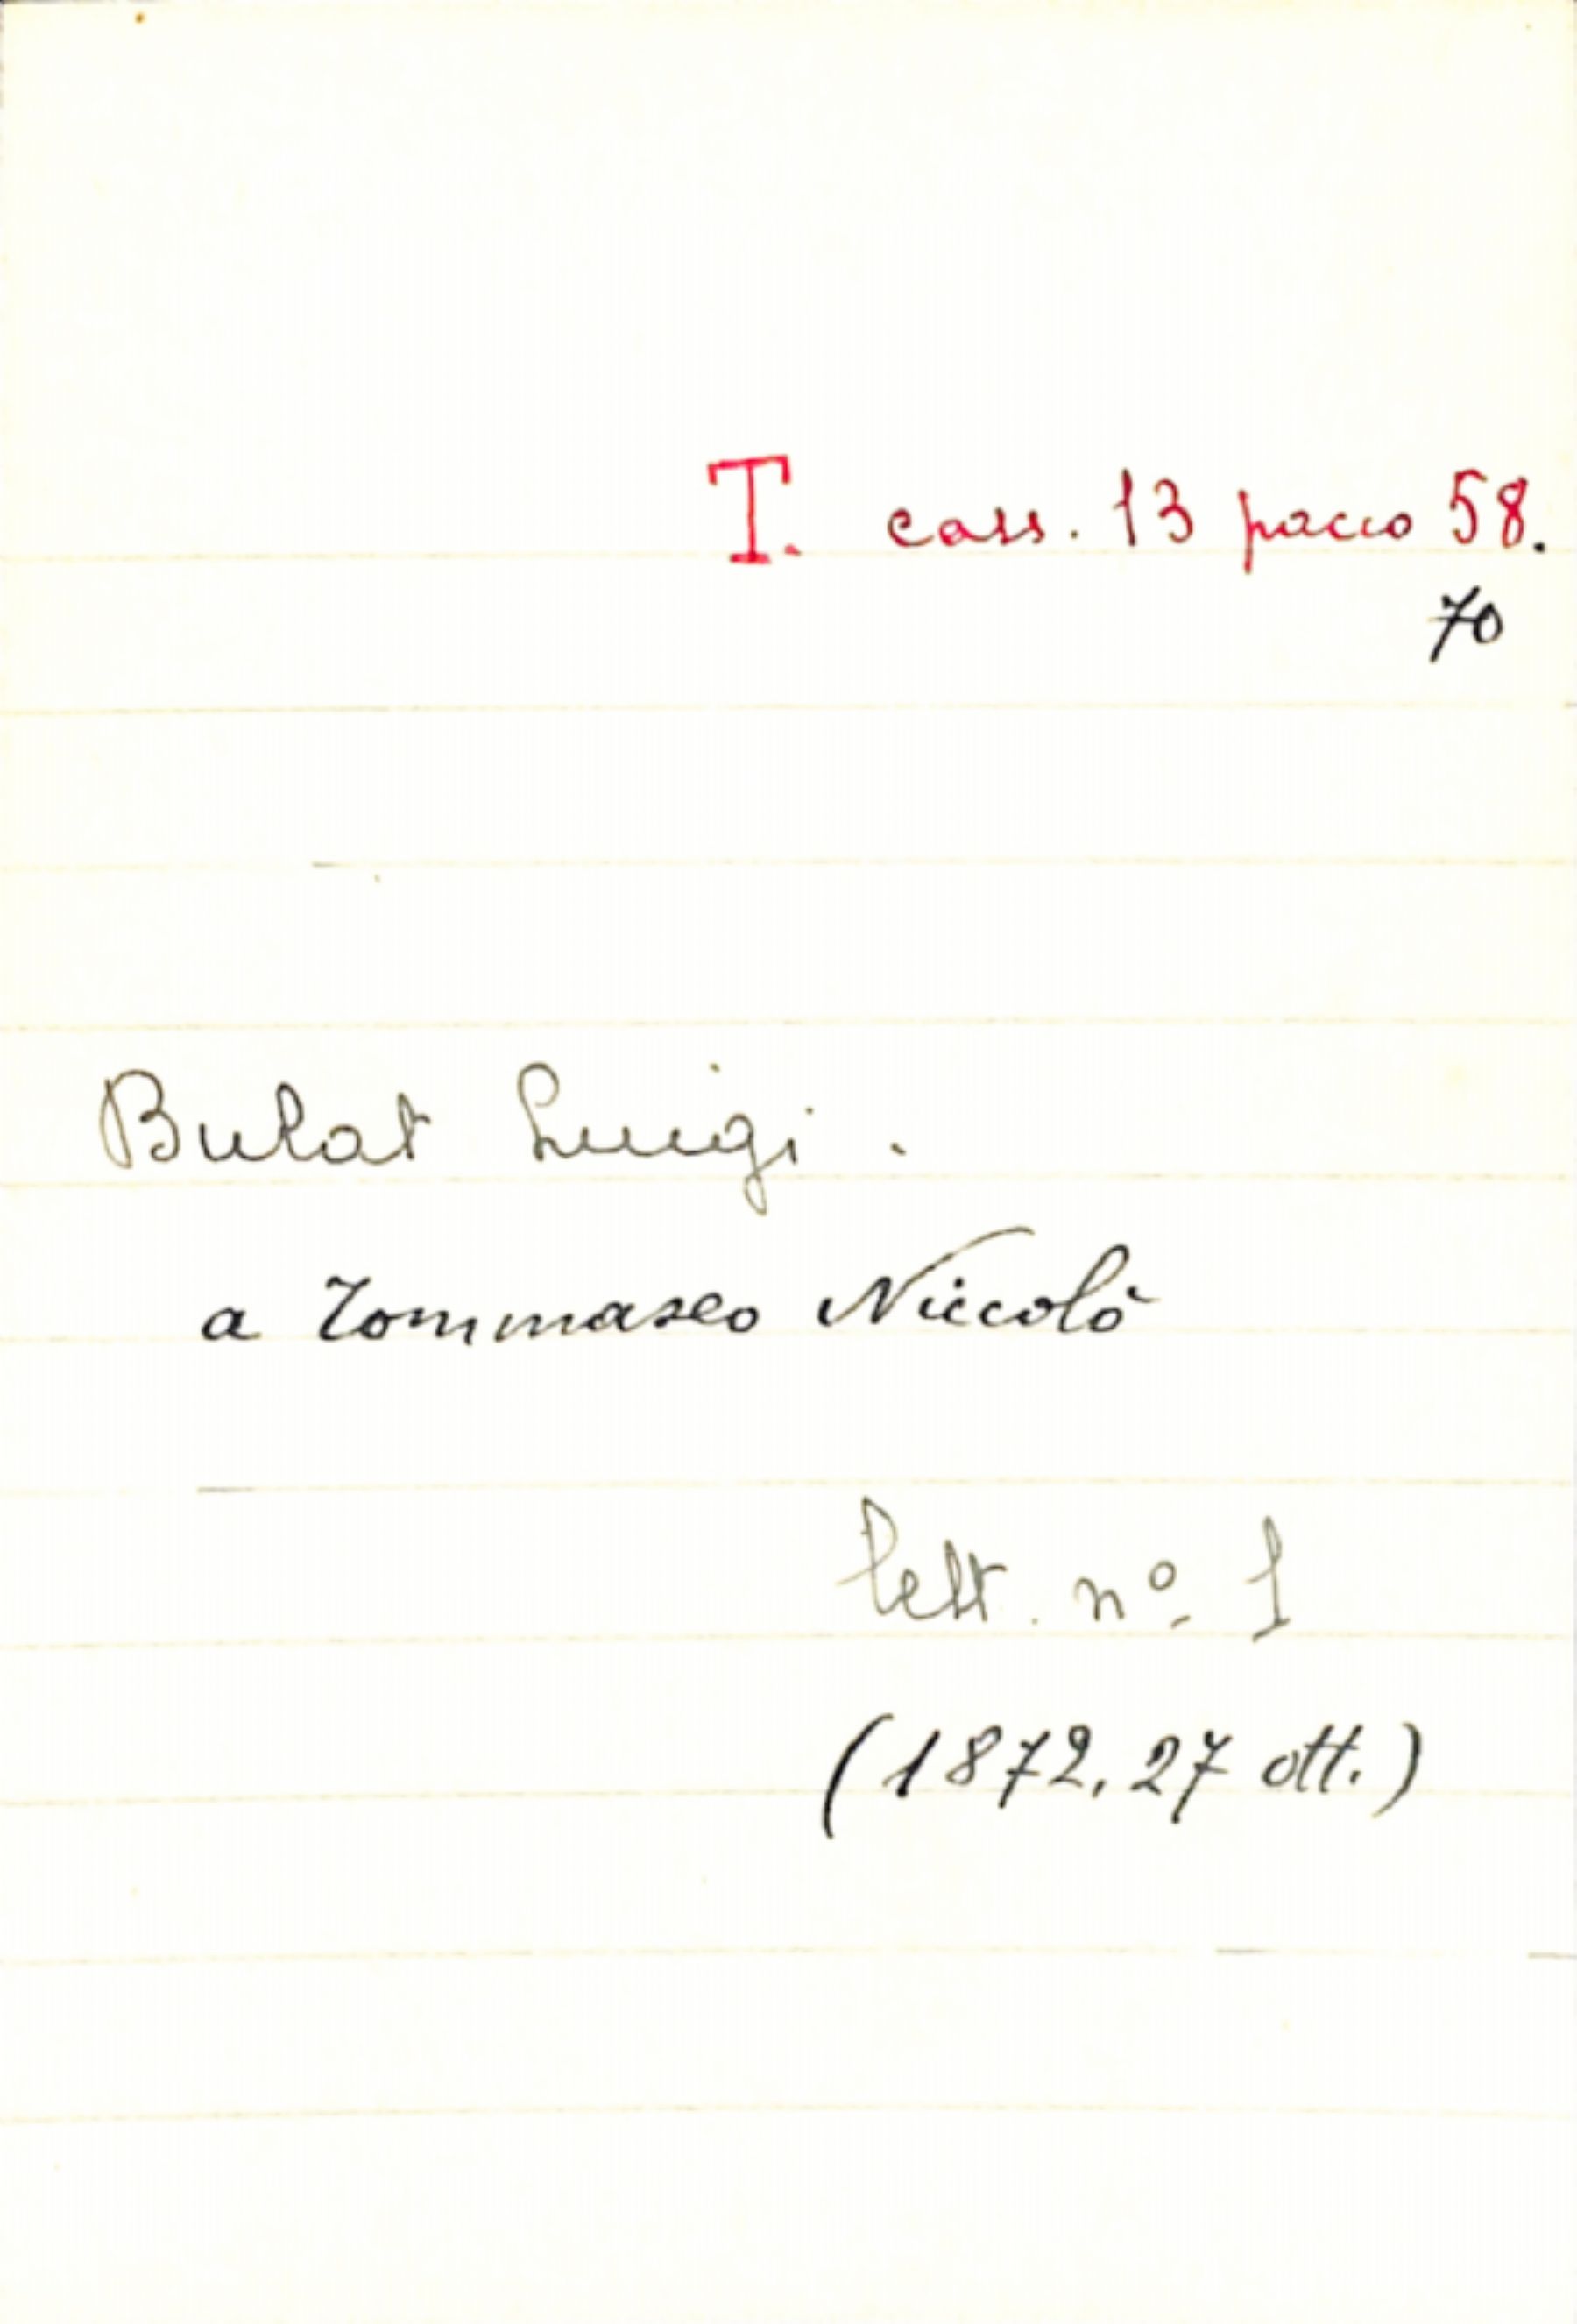 T. cass. 13 pacco 58.
70
Bulat Luigi.
a Tommaseo Niccolò
lett. nº 1
(1872, 27 ott.)